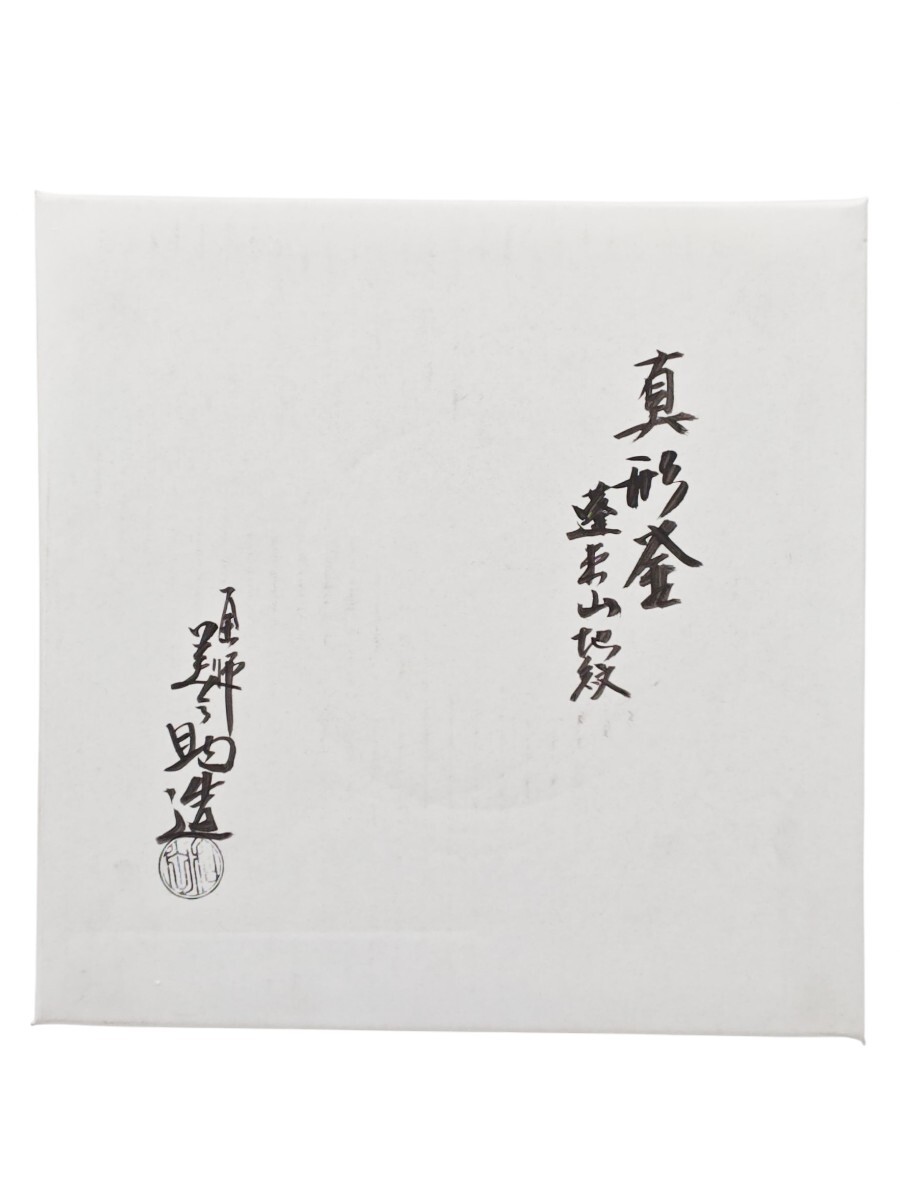 真形釜
蓬来山地紋
釜師
美之助造